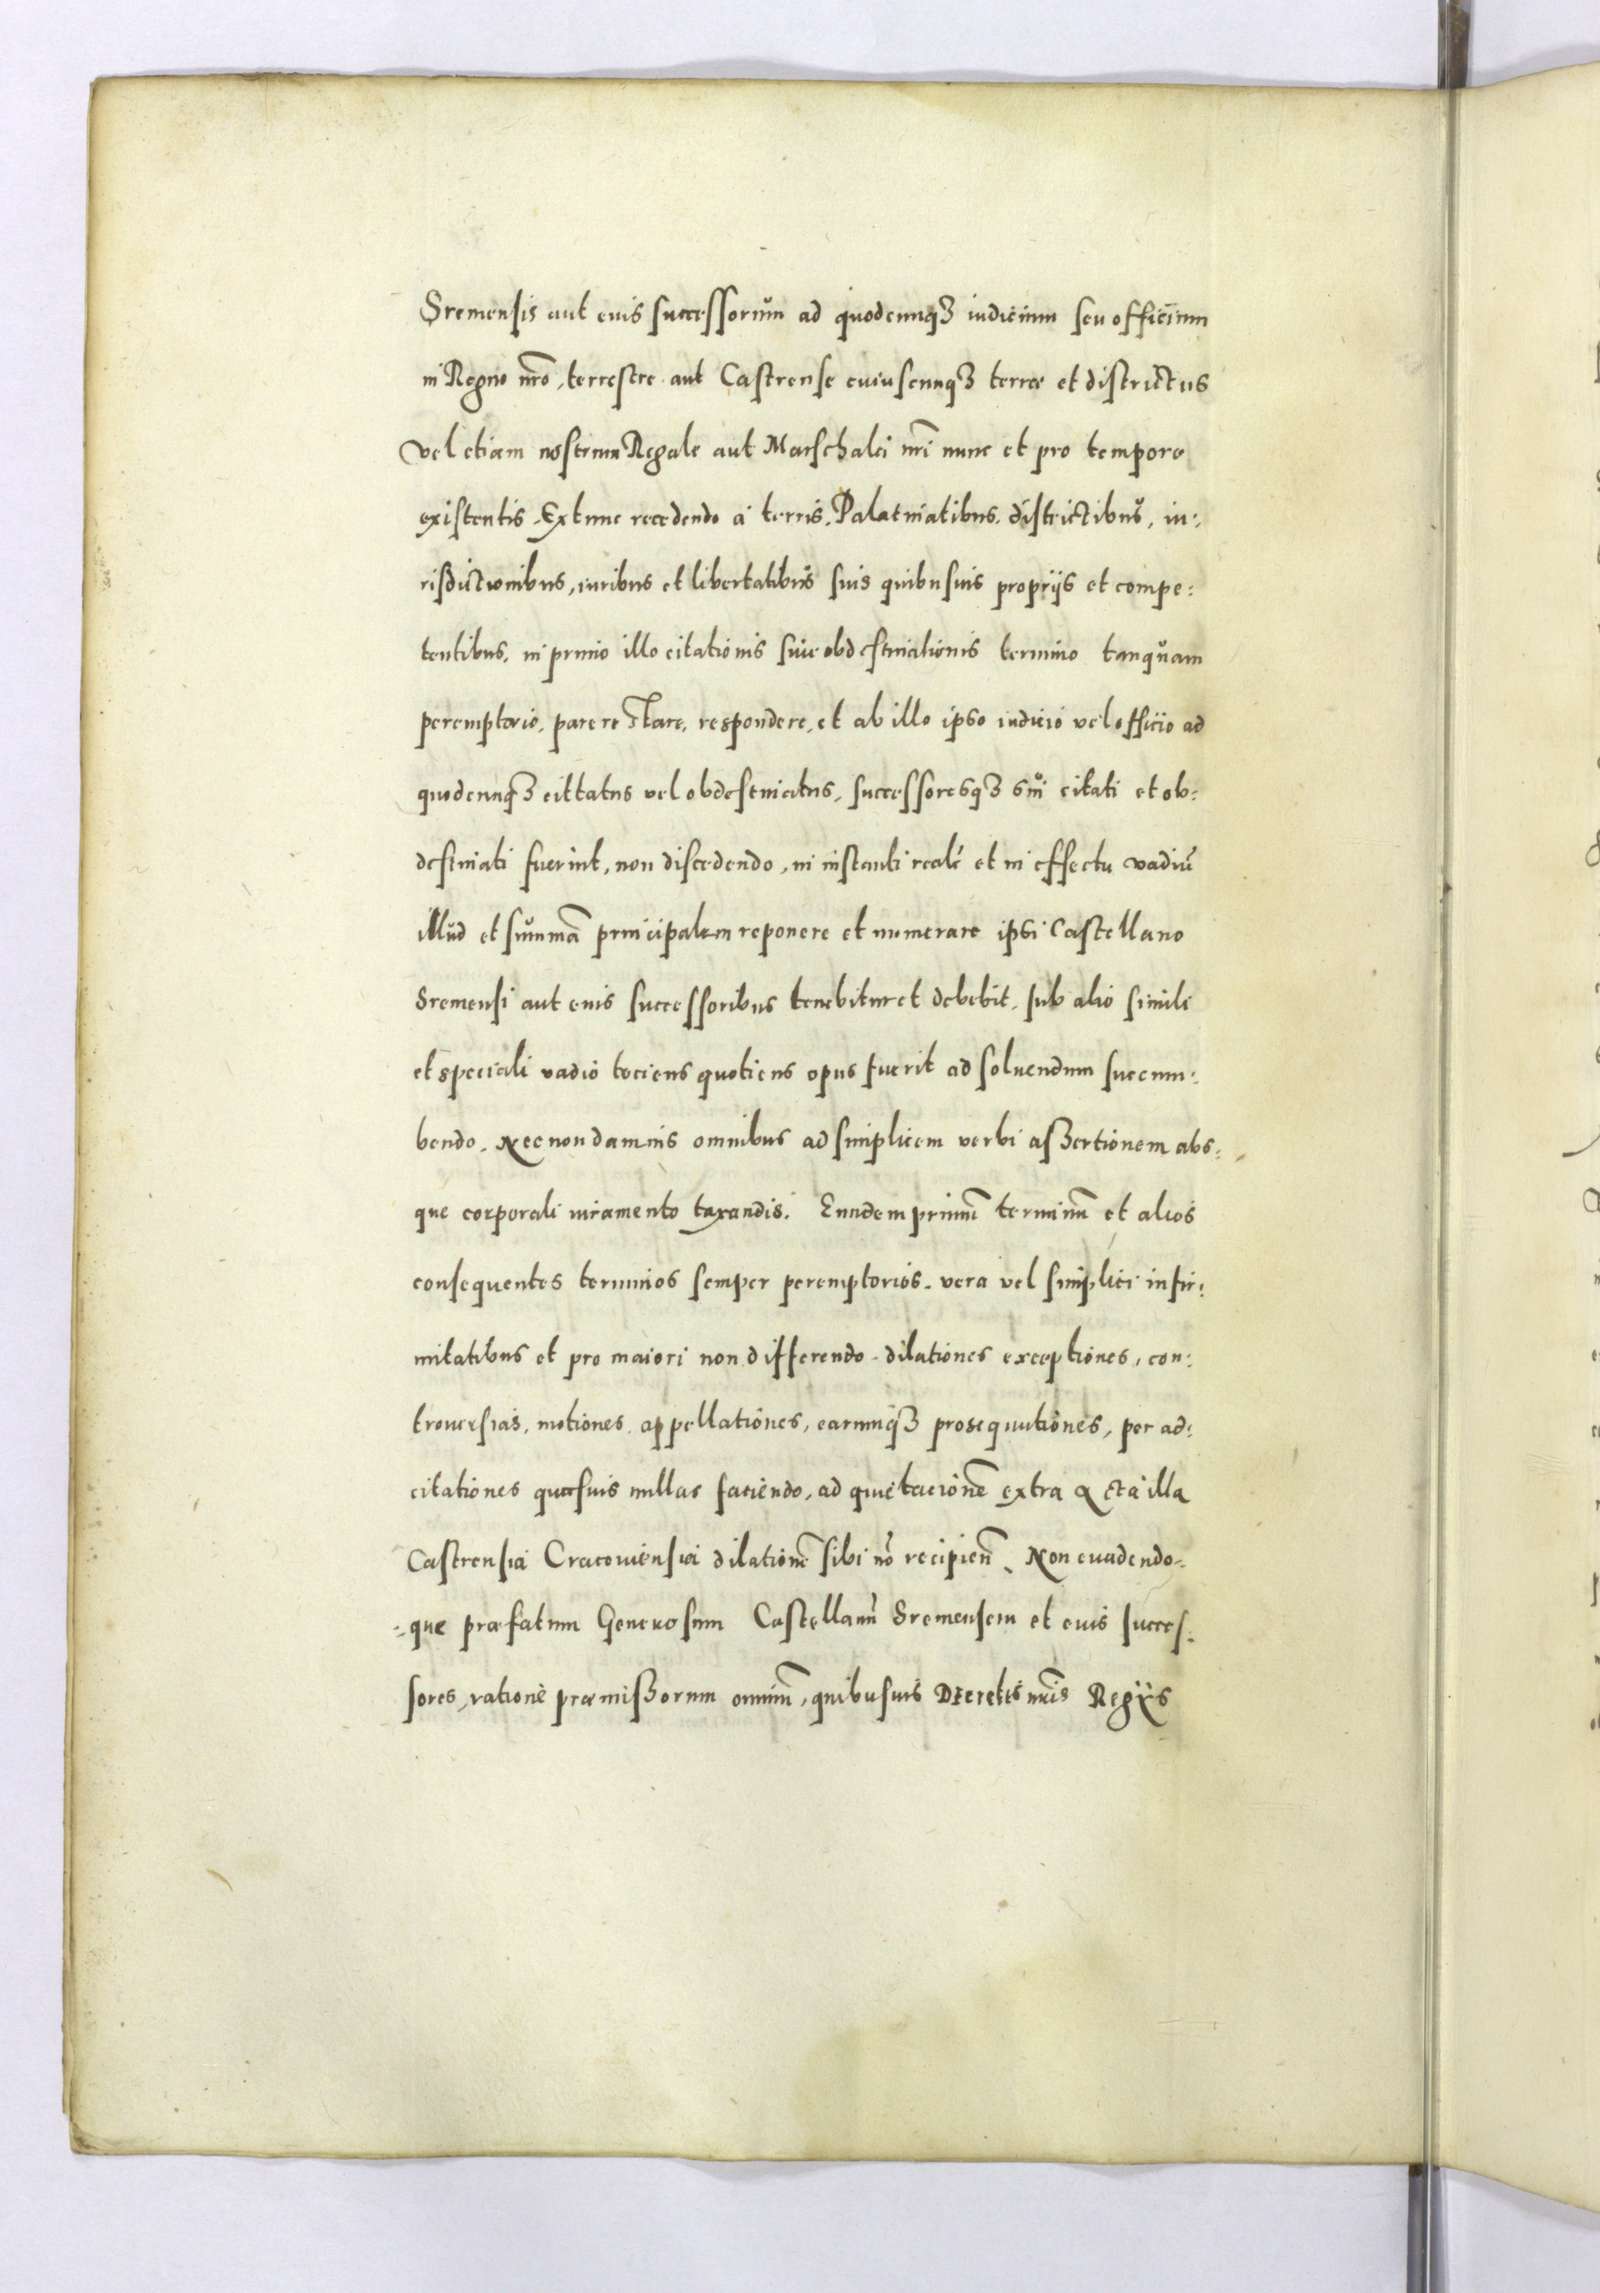 Sremensis aut eius successorum ad quodcunqꝫ iudicium seu officium
in Regno nr̃o, terrestre aut Castrense cuiuscunqꝫ terræ et districtus
vel etiam nostrum Regale aut Marschalci nr̃i nunc et pro tempore
existentis. Extunc recedendo à terris, Palatinatibus, districtibus, iu:
risdictionibus, iuribus et libertatibus suis quibusuis proprijs et compe:
tentibus, in primo illo citationis siue obdestinationis termino tanquam
peremptorio, parere stare, respondere, et ab illo ipso iudicio vel officio ad
quodcunqꝫ cittatus vel obdestinatus, successoresqꝫ sui citati et ob:
destinati fuerint, non discedendo, in instanti realr̃ et in effectu vadiũ
illud et summã principalem reponere et numerare ipsi Castellano
Sremensi aut eius successoribus tenebitur et debebit, sub alio simili
et speciali vadio tociens quotiens opus fuerit ad soluendum succum:
bendo. Necnon damnis omnibus ad simplicem verbi aßertionem abs:
que corporali iuramento taxandis. Eundem primũ terminũ et alios
consequentes terminos semper peremptorios, vera vel simplici infir:
mitatibus et pro maiori non differendo, dilationes exceptiones, con:
trouersias, motiones, appellationes, earumqꝫ prosequutiones, per ad:
citationes quasuis nullas faciendo, ad quietacionẽ extra acta illa
Castrensia Cracouiensia dilationẽ sibi nõ recipieñ. Non euadendo:
:que præfatum Generosum Castellanũ Sremensem et eius succes:
sores, ratione præmißorum omniũ, quibusuis Decretis nr̃is Regijs